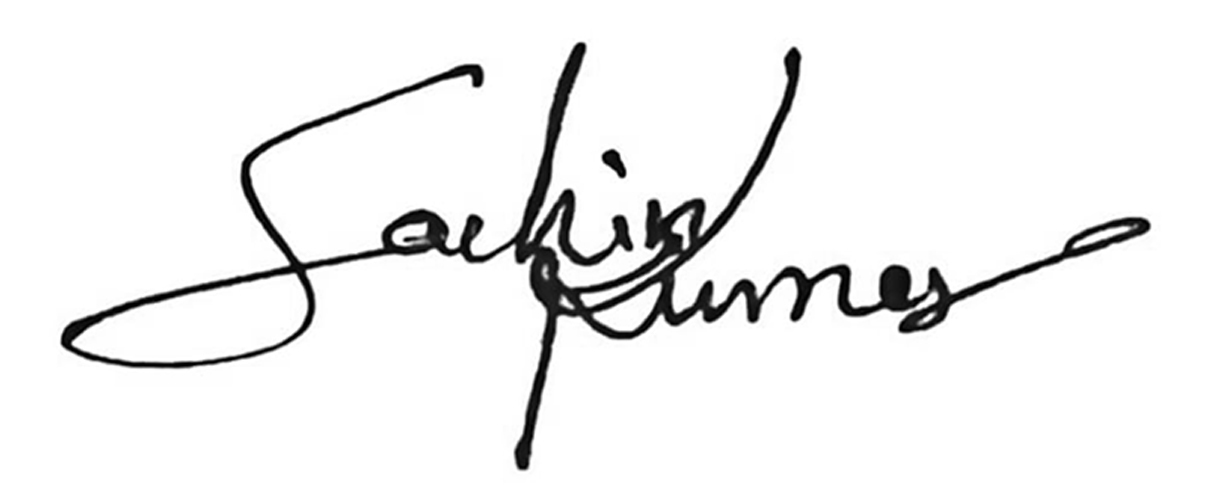 Sachin
Kumar